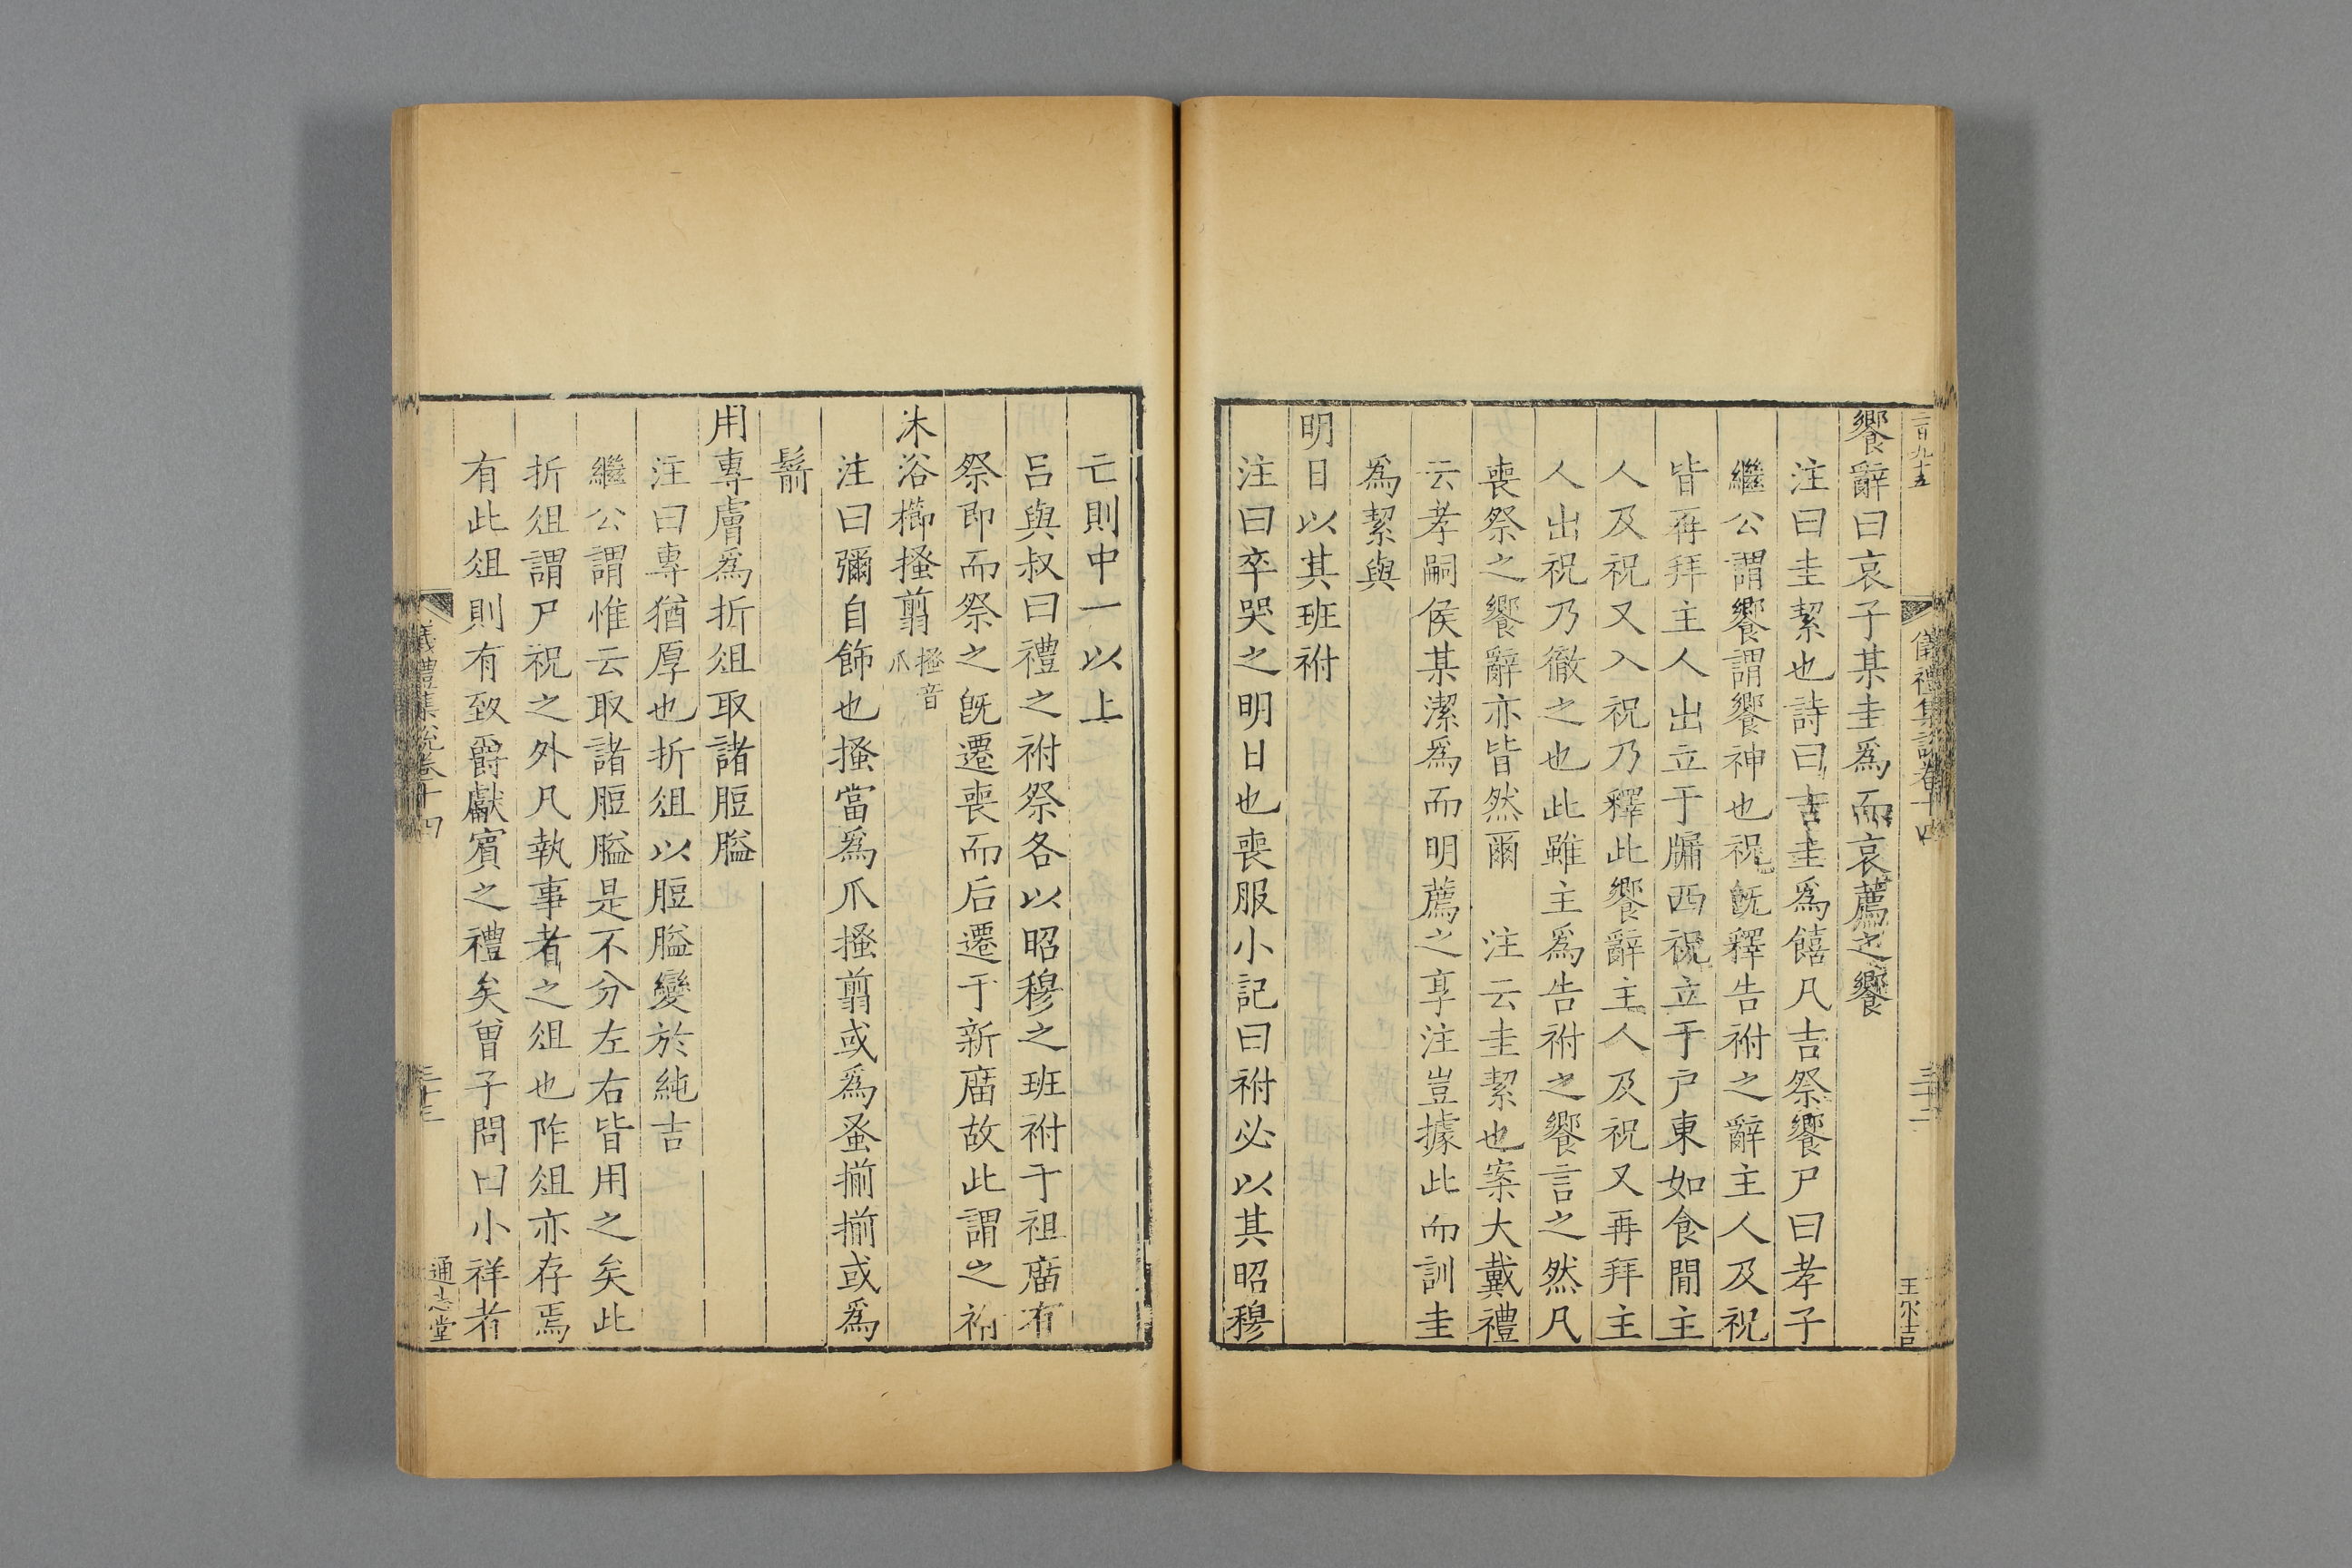 二百九十五
儀禮集說卷十四
三十二
王尔吉
饗辭曰哀子某圭爲而哀薦之饗
注曰圭絜也詩曰吉圭爲饎凡吉祭饗尸曰孝子
繼公謂饗謂饗神也祝既釋告祔之辭主人及祝
皆再拜主人出立于牖西祝立于戶東如食閒主
人及祝又入祝乃釋此饗辭主人及祝又再拜主
人出祝乃徹之也此雖主爲告祔之饗言之然凡
喪祭之饗辭亦皆然爾　注云圭絜也案大戴禮
云孝嗣侯某潔爲而明薦之享注豈據此而訓圭
爲絜與
明日以其班祔
注曰卒哭之明日也喪服小記曰祔必以其昭穆
亡則中一以上
呂與叔曰禮之祔祭各以昭穆之班祔于祖廟有
祭即而祭之旣遷喪而后遷于新廟故此謂之祔
沐浴櫛搔翦搔音爪
注曰彌自飾也搔當爲爪搔翦或爲蚤揃揃或爲
鬋
用專膚爲折俎取諸脰膉
注曰專猶厚也折俎以脰膉變於純吉
繼公謂惟云取諸脰膉是不分左右皆用之矣此
折俎謂尸祝之外凡執事者之俎也阼俎亦存焉
有此俎則有致爵獻賓之禮矣曾子問曰小祥者
儀禮集說卷十四
三十三
通志堂